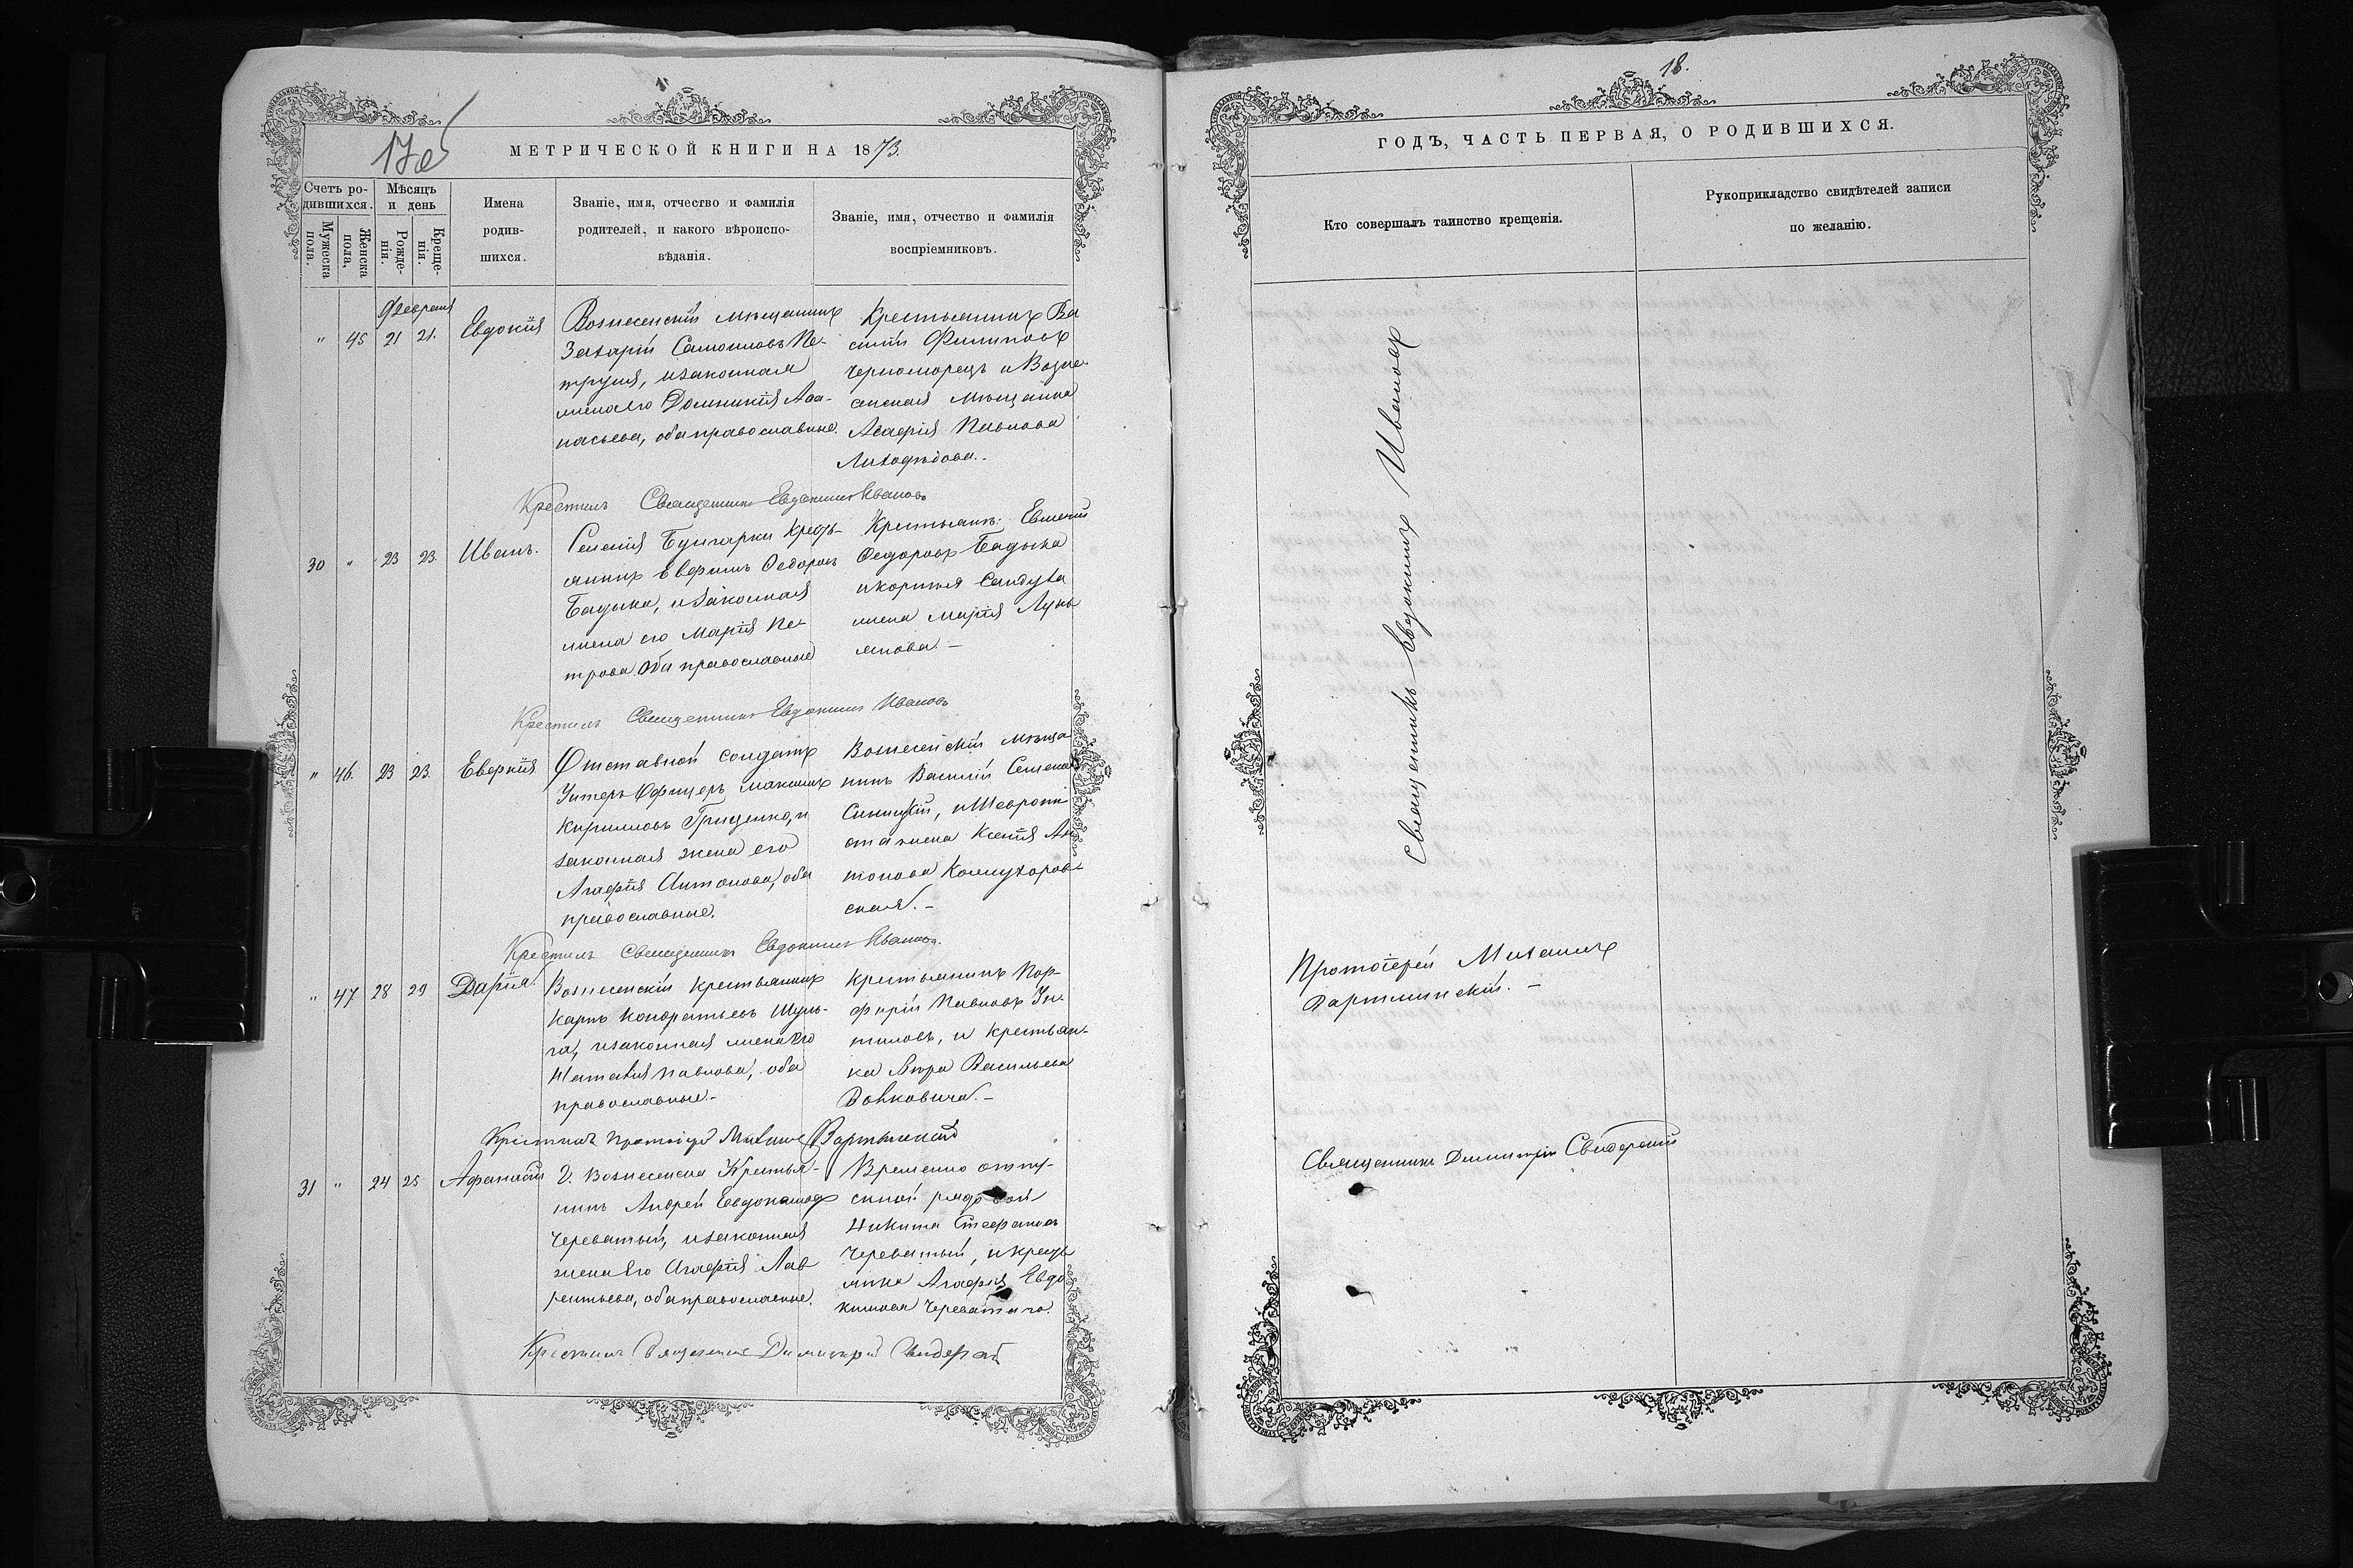 17об
МЕТРИЧЕСКОЙ КНИГИ НА 1873.
Счетъ ро-
дившихся.
Мужеска
пола.
Женска
пола.
Мѣсяцъ
и день
Рожде-
нія.
Креще-
нія.
Имена
родив-
шихся.
Званіе, имя, отчество и фамилія
родителей, и какого вѣроиспо-
вѣданія.
Званіе, имя, отчество и фамилія
воспріемниковъ.
Февраля
" 45 21 21. Евдокія
Вознесенскій мѣщанинъ
Захарій Самоиловъ Пе-
труня, и законная
жена его Домникія Аѳа-
насьева, оба православные.
Крестьянинъ Ва
силій Филиповъ
Черноморецъ и Возне-
сенская мѣщанка
Агафія Павлова
Лиходѣдова.
Крестилъ Священникъ Евдокимъ Ивановъ
30 " 23 23. Иванъ.
Селенія Булгарки Кресть-
янинъ Федоровъ
Бадыка, и законная
жена его Марія Пе-
трова оба православные
Крестьянъ. Евгеній
Федоровъ Бадыка
жена Марія Лукь
янова. –
Крестилъ Священникъ Евдокимъ Ивановъ
" 46. 23 23. Еверкія
Отставной солдатъ
Унтеръ Офицеръ Максимъ
Кирилловъ Гриценко, и
законная жена его
Агафія Антонова, оба
православные.
Вознесенскій мѣща
нинъ Василій Семеновъ
Синицкій, и Шаврони
ота жена Ксенія Ан
тонова
ская. –
Крестилъ Священникъ Евдокимъ Ивановъ.
" 47 28 29 Дарія.
Вознесенскій крестьянинъ
Карпъ Кондратьевъ Шуль-
га, и законная жена его
Наталія Павлова, оба
православные. –
Крестьянинъ Пор-
фирій Павловъ
и крестьян-
ка Вѣра Васильева
Вовковича. –
Крестилъ Протоіерей Михаилъ Вартминскій
31 " 24 25 Афанасій
Г. Вознесенска Крестья-
нинъ Андрей Евдокимовъ
Череватый, и законная
жена его Агафія Лав
рентьева, оба православные.
Временно отпу-
скной рядовой
Никита Стефановъ
Череватый, и кресть
янка Агафія Евдо
кимова Череватаго.
Крестилъ Священникъ Димитрій Свидерскій
18.
ГОДЪ, ЧАСТЬ ПЕРВАЯ, О РОДИВШИХСЯ.
Кто совершалъ таинство крещенія.
Рукоприкладство свидѣтелей записи
по желанію.
Священникъ Евдокимъ Ивановъ
Протоіерей Михаилъ
Вартминскій. –
Священникъ Димитрій Свидерскій